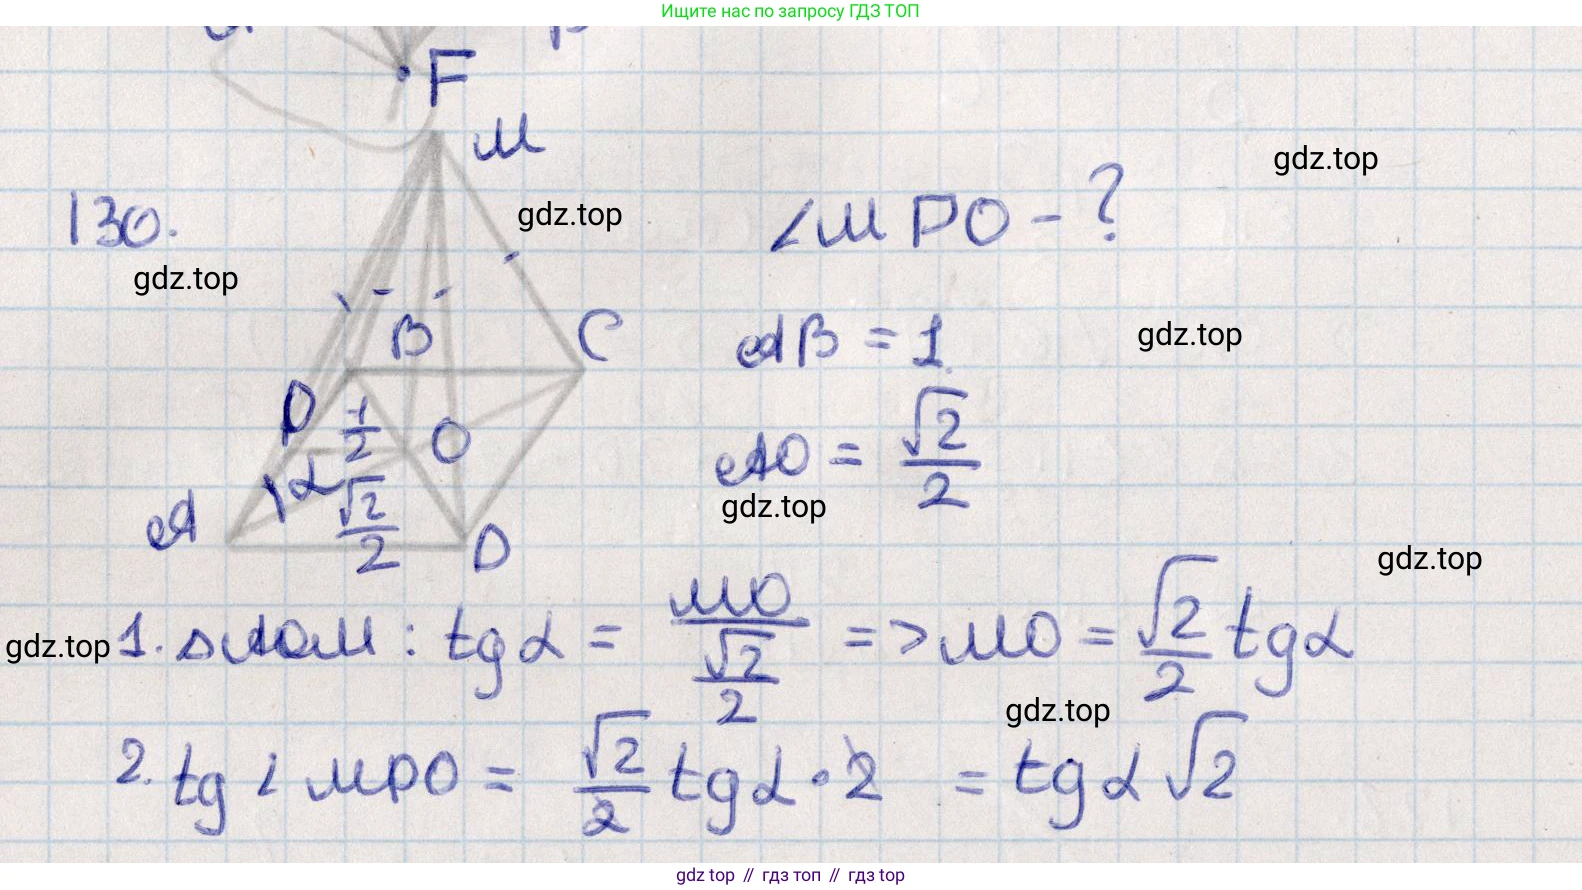 Ищите нас по запросу ГДЗ ТОП
F
M
gdz.top
130.
gdz.top
∠MPO - ?
gdz.top
B
C
AB = 1
gdz.top
P
1/2
O
AO = √2/2
α
√2/2
gdz.top
A
D
gdz.top
gdz.top
1. ΔAOM : tg α = MO / (√2/2) => MO = √2/2 tg α
gdz.top
2. tg ∠ MPO = √2/2 tg α · 2 = tg α √2
gdz.top // гдз топ // гдз top